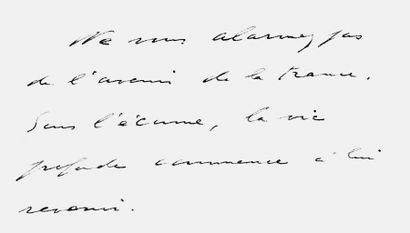 Ne vous alarmez pas
de l'avenir de la France.
Sous l'écume, la vie
profonde commence à lui
revenir.